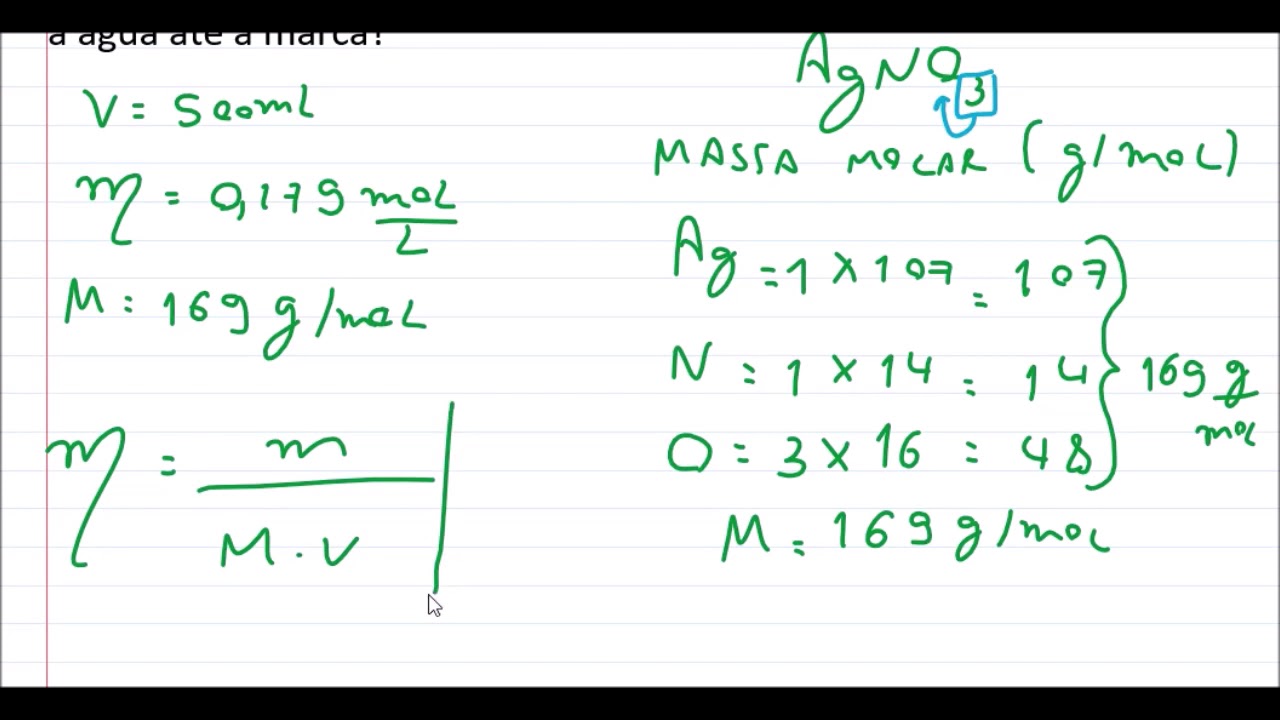 a água até a marca?
V = 500ml
η = 0,179 mol/L
M = 169 g/mol
η = m / M . V
AgNO3
MASSA MOLAR (g/mol)
Ag = 1 x 107 = 107
N = 1 x 14 = 14
O = 3 x 16 = 48
169 g/mol
M = 169 g/mol